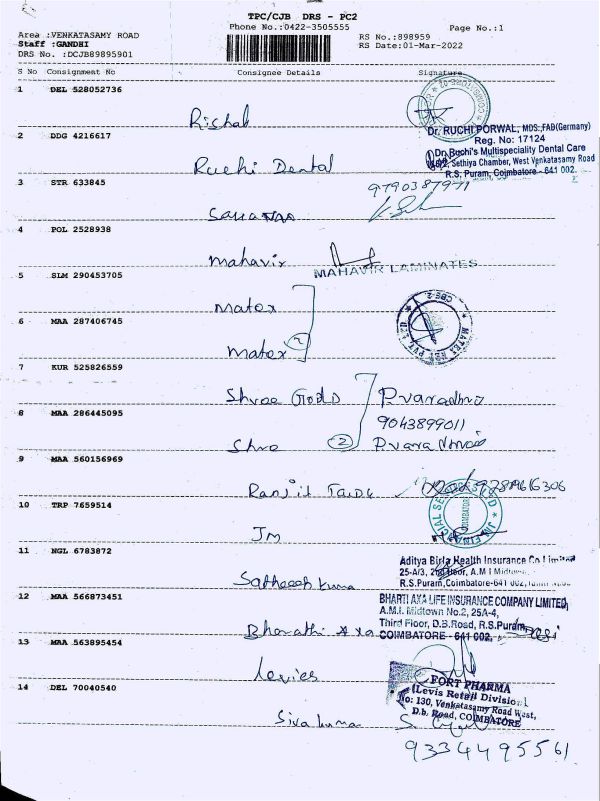 TPC/CJB DRS - PC2
Phone No.:0422-3505555
Page No.:1
Area :VENKATASAMY ROAD
Staff :GANDHI
DRS No. :DCJB89895901
RS No.:898959
RS Date:01-Mar-2022
S No Consignment No Consignee Details Signature
1 DEL 528052736
Rishab
Dr. RUCHI PORWAL, MDS.,FAD(Germany)
Reg. No: 17124
2 DDG 4216617
Dr. Ruchi's Multispeciality Dental Care
Sethiya Chamber, West Venkatasamy Road
R.S. Puram, Coimbatore - 641 002.
Ruchi Dental
3 STR 633845
9790387971
4 POL 2528938
Mahavir
MAHAVIR LAMINATES
5 SLM 290453705
Matex
CBE-2
6 MAA 287406745
Matex 2
7 KUR 525826559
Shree Gods
9043899011
8 MAA 286445095
Shre 2
9 MAA 560156969
Ranjit
10 TRP 7659514
JM
COIMBATORE
11 NGL 6783872
Aditya Birla Health Insurance Co Limited
25-A/3, 2nd floor, A.M.I Midtown
R.S.Puram, Coimbatore-641 002
Satheesh Kuma
12 MAA 566873451
BHARTI AXA LIFE INSURANCE COMPANY LIMITED,
A.M.I. Midtown No.2, 25A-4,
Third Floor, D.B.Road, R.S.Puram,
COIMBATORE - 641 002.
Bharathi Axa
13 MAA 563895454
Levies
FORT PHARMA
(Levis Retail Division)
14 DEL 70040540
No: 130, Venkatasamy Road West,
D.b. Road, COIMBATORE
Siva kuma
9334495561